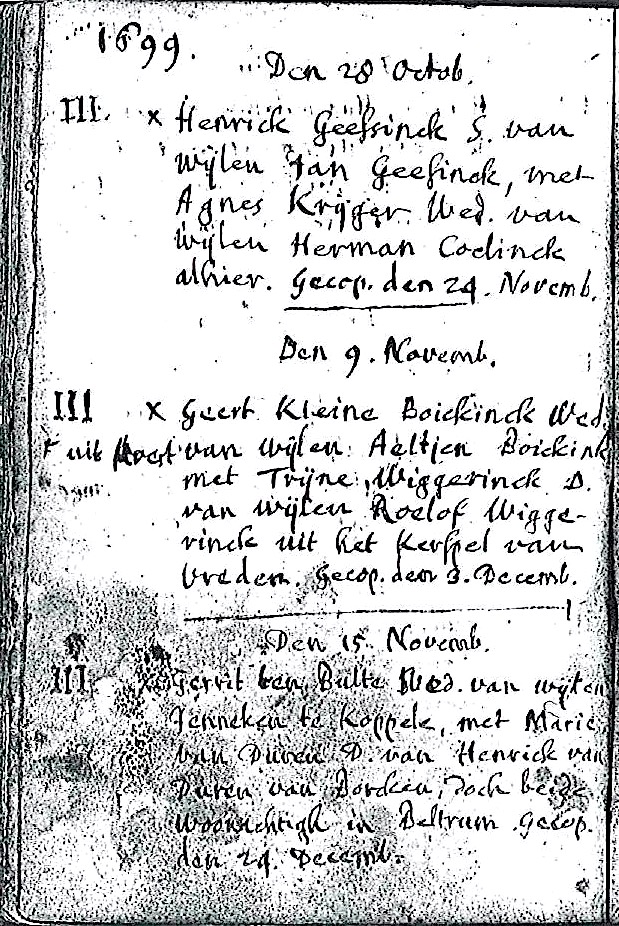 1699.
Den 28 Octob.
III. x Henrick Geessinck S. van
wijlen Jan Geesinck, met
Agnes Krijger Wed. van
wijlen Herman Coelinck
alhier. Gecop. den 24. Novemb.
Den 9. Novemb.
III x Geert Kleine Boickinck Wed.
uit van wijlen Aeltjen Boickink
met Trijne Wiggerinck D.
van wijlen Roelof Wigge-
rinck uit het Kerspel van
Vreden. Gecop. den 3. Decemb.
Den 15. Novemb.
III x Gerrit ten Bulte Wed. van wijlen
Jenneken te Koppele, met Marie
van Duren D. van Henrick van
Duren van Borcken, doch beide
woonachtigh in Beltrum. Gecop.
den 24. Decemb.